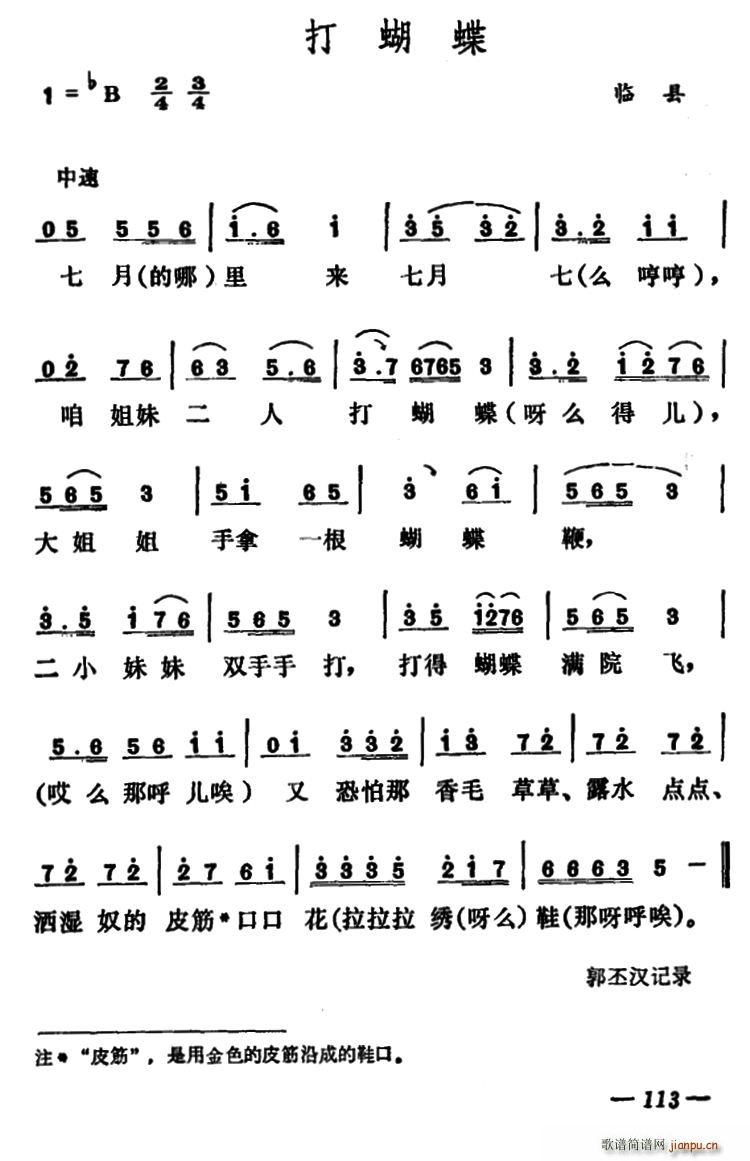 打蝴蝶
1=♭B 2/4 3/4 临县
中速
05 556 | i.6 i | 35 32 | 3.2 ii |
七月(的哪)里来七月七(么哼哼),
02 76 | 63 5.6 | 3.7 6765 3 | 3.2 i276 |
咱姐妹二人打蝴蝶(呀么得儿),
565 3 | 5i 65 | 3 6i | 565 3 |
大姐姐手拿一根蝴蝶鞭,
3.5 i76 | 565 3 | 35 i276 | 565 3 |
二小妹妹双手手打,打得蝴蝶满院飞,
5.6 56 ii | 0i 332 | i3 72 | 72 72 |
(哎么那呼儿唉)又恐怕那香毛草草、露水点点、
72 72 | 27 6i | 3335 2i7 | 6663 5 — ‖
洒湿奴的皮筋*口口花(拉拉拉绣(呀么)鞋(那呀呼唉)。
郭丕汉记录
注*“皮筋”,是用金色的皮筋沿成的鞋口。
— 113 —
歌谱简谱网 jianpu.cn